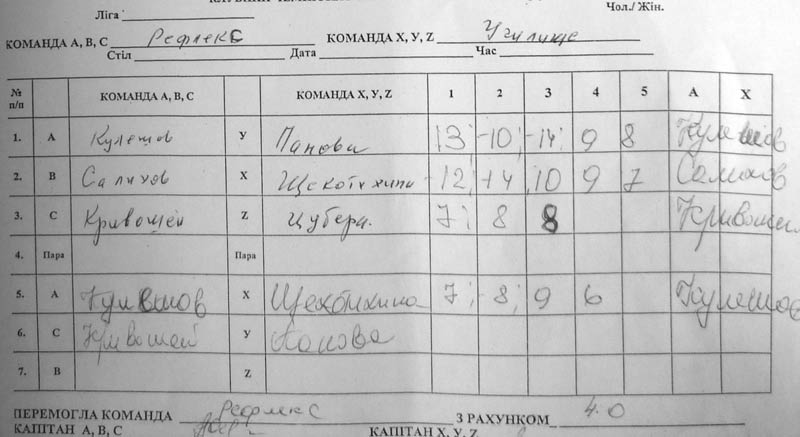 Ліга Чол./ Жін.
КОМАНДА А, В, С Рефлекс КОМАНДА X, У, Z Училище
Стіл Дата Час
№ п/п КОМАНДА А, В, С КОМАНДА X, У, Z 1 2 3 4 5 А X
1. А Кулешов У Панова 13; -10; -14; 9 8 Кулешов
2. В Салихов X Щекотихина -12, 14, 10 9 7 Салихов
3. С Кривошей Z Цубера. 7; 8 8 Кривошей
4. Пара Пара
5. А Кулешов X Щекотихина 7; -8; 9 6 Кулешов
6. С Кривошей У Панова
7. В Z
ПЕРЕМОГЛА КОМАНДА Рефлекс З РАХУНКОМ 4:0
КАПІТАН А, В, С КАПІТАН X, У, Z